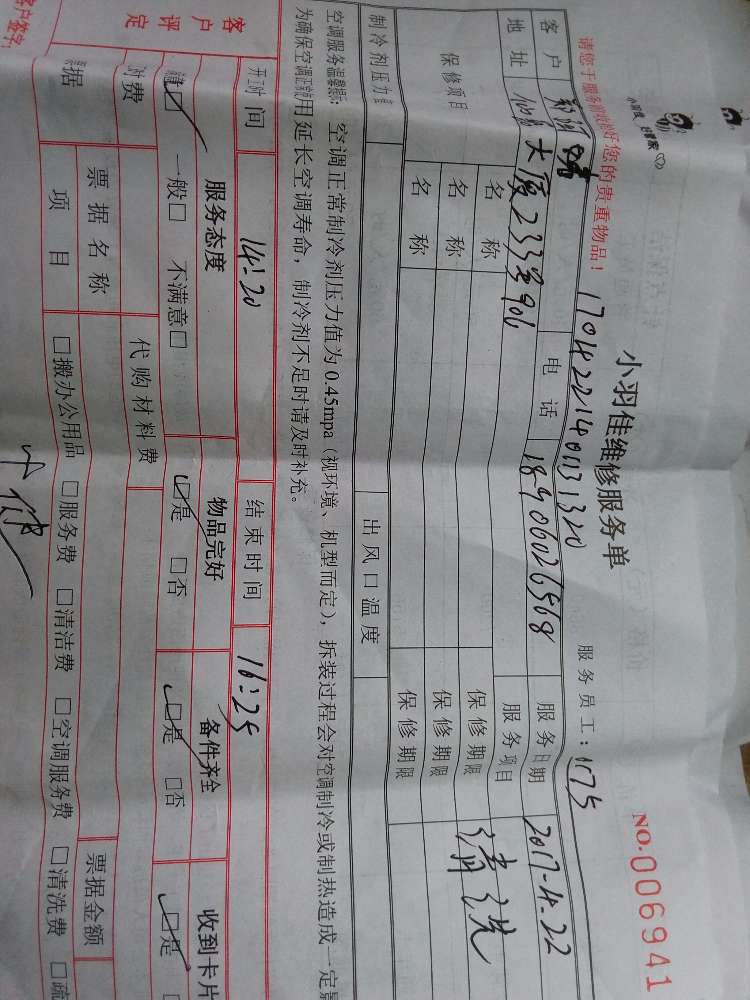 小羽佳 好管家
小羽佳维修服务单
NO.006941
请您于服务前收拾好您的贵重物品！
17042214001131320
服务员工：1175
客户 电话 18906026568 服务日期 2017-4-22
地址 大厦233号906 服务项目 清洗
保修项目 名称 保修期限
名称 保修期限
名称 保修期限
制冷剂压力 出风口温度
空调服务温馨提示： 空调正常制冷剂压力值为0.45mpa（视环境、机型而定），拆装过程会对空调制冷或制热造成一定影
为确保空调正常使用延长空调寿命，制冷剂不足时请及时补充。
开工时间 14:20 结束时间 16:25
客户评定 服务态度 物品完好 备件齐全 收到卡片
满意☑ 一般□ 不满意□ ☑是 □否 ☑是 □否 ☑是
付费 代购材料费
票据 票据名称 票据金额
项目 □搬办公用品 □服务费 □清洁费 □空调服务费 □清洗费 □疏
客户签字: